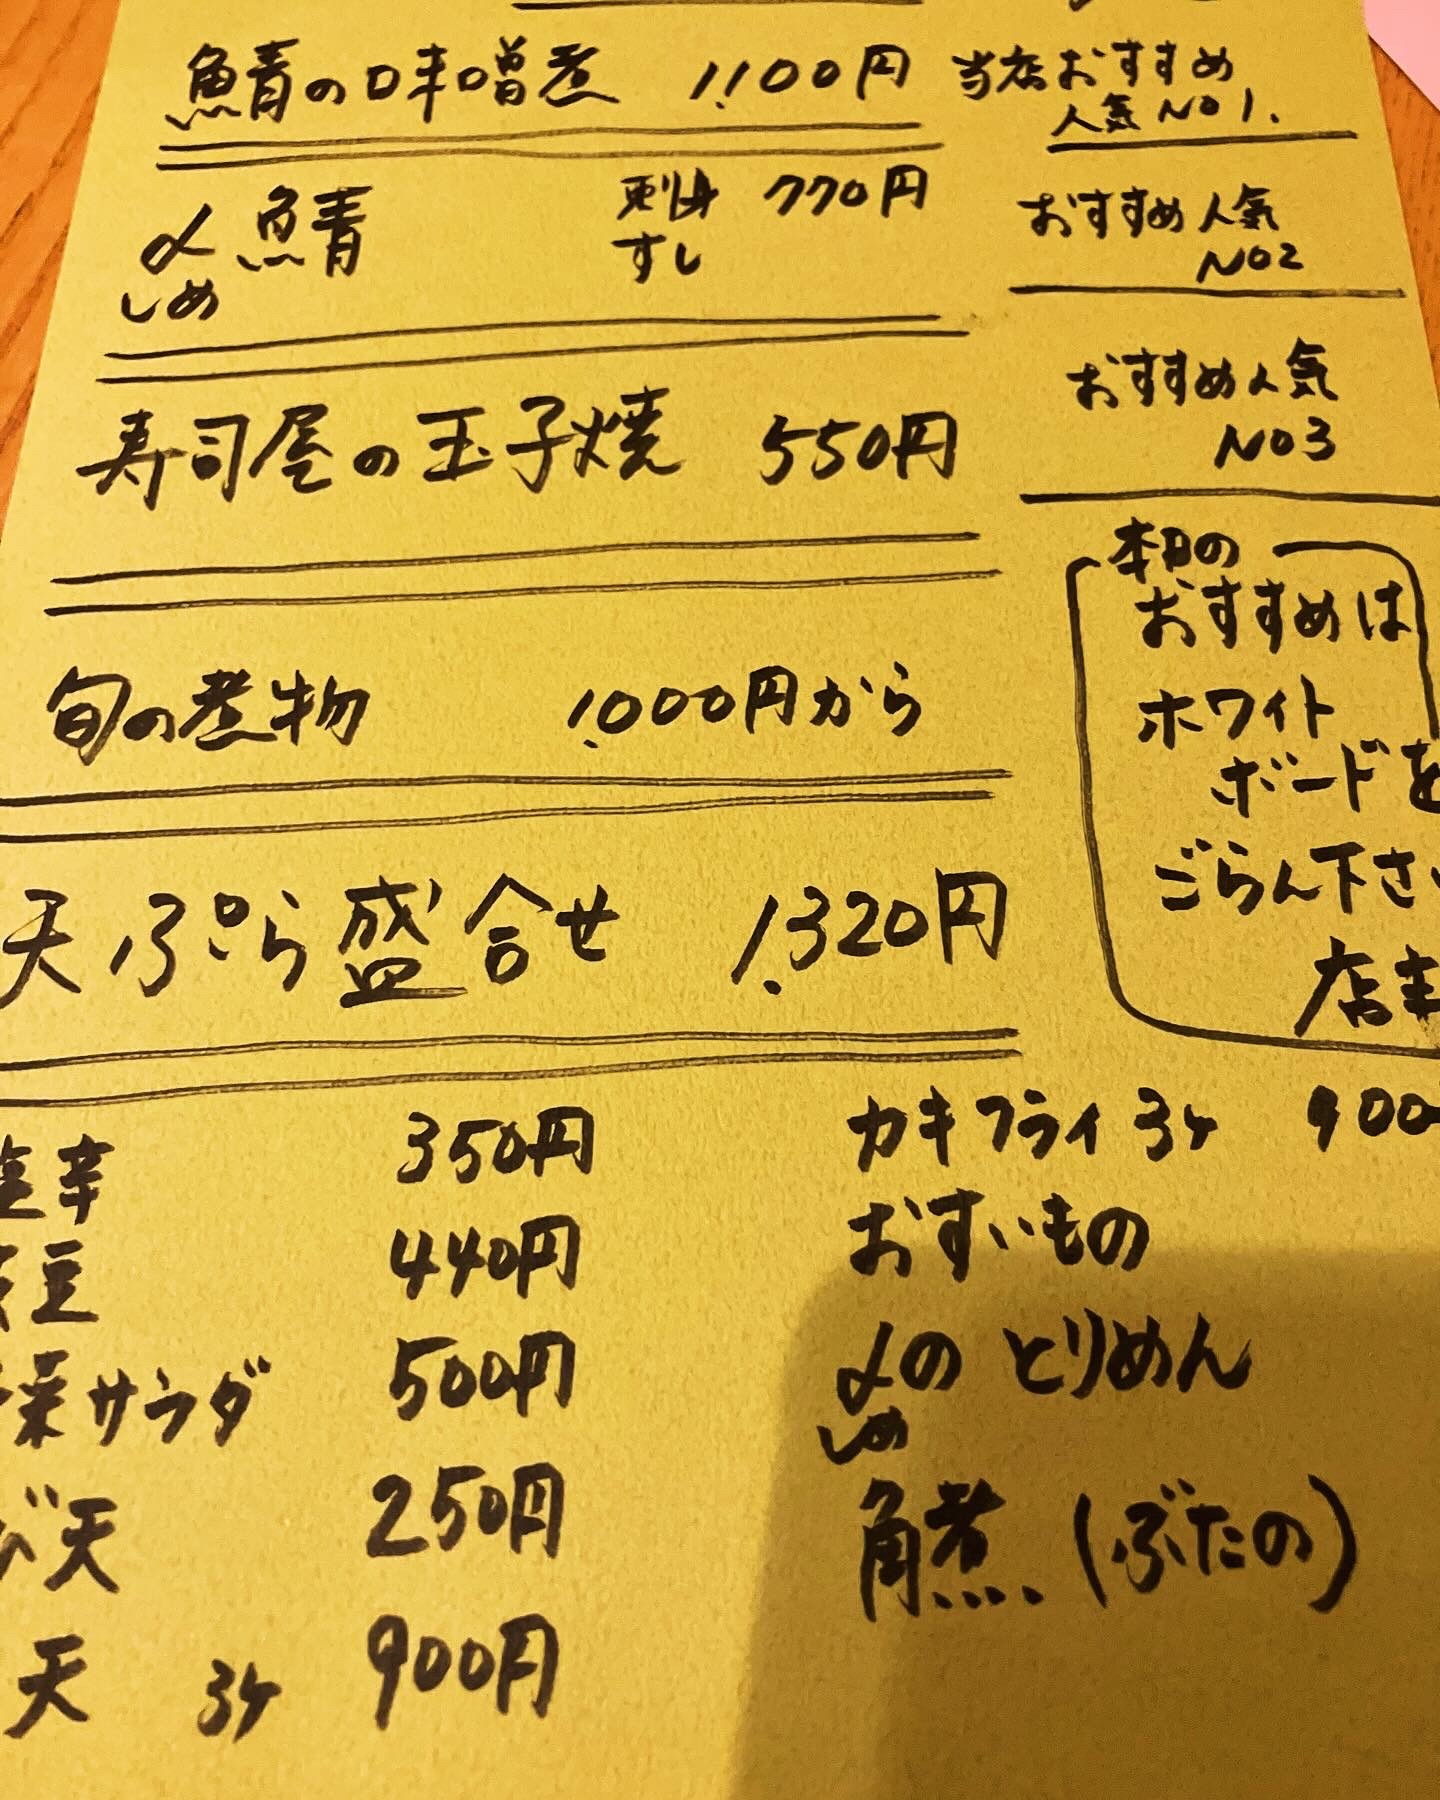 鯖の味噌煮 1,100円 当店おすすめ
人気 NO1.
〆鯖 刺身 770円 おすすめ人気
しめ すし NO2
寿司屋の玉子焼 550円 おすすめ人気
NO3
旬の煮物 1,000円から
天ぷら盛合せ 1,320円
本日の
おすすめは
ホワイト
ボードを
ごらん下さい
店主
塩辛 350円
豆 440円
菜サラダ 500円
び天 250円
天 3ヶ 900円
カキフライ 3ヶ 900
おすいもの
〆の とりめん
しめ
角煮 (ぶたの)